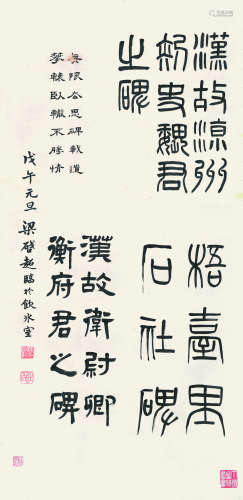 漢故涼州
刺史魏君
之碑
梧臺里
石社碑
漢故衛尉卿
衡府君之碑
無限去思碑載道
攀轅臥轍不勝情
戊午元旦梁啓超臨於飲冰室